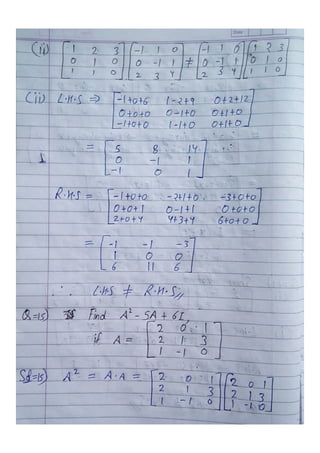 (ii) [1 2 3 [-1 1 0 ≠ [-1 1 0 [1 2 3
0 1 0 0 -1 1 0 -1 1 0 1 0
1 1 0] 2 3 4] 2 3 4] 1 1 0]
(ii) L.H.S ⇒ [-1+0+6 1-2+9 0+2+12
0+0+0 0-1+0 0+1+0
-1+0+0 1-1+0 0+1+0]
= [5 8 14
0 -1 1
-1 0 1]
R.H.S = [-1+0+0 -2+1+0 -3+0+0
0+0+1 0-1+1 0+0+0
2+0+4 4+3+4 6+0+0]
= [-1 -1 -3
1 0 0
6 11 6]
∴ L.H.S ≠ R.H.S
Q=15) Find A² - 5A + 6I
if A = [2 0 1
2 1 3
1 -1 0]
Sol=15) A² = A.A = [2 0 1 [2 0 1
2 1 3 2 1 3
1 -1 0] 1 -1 0]